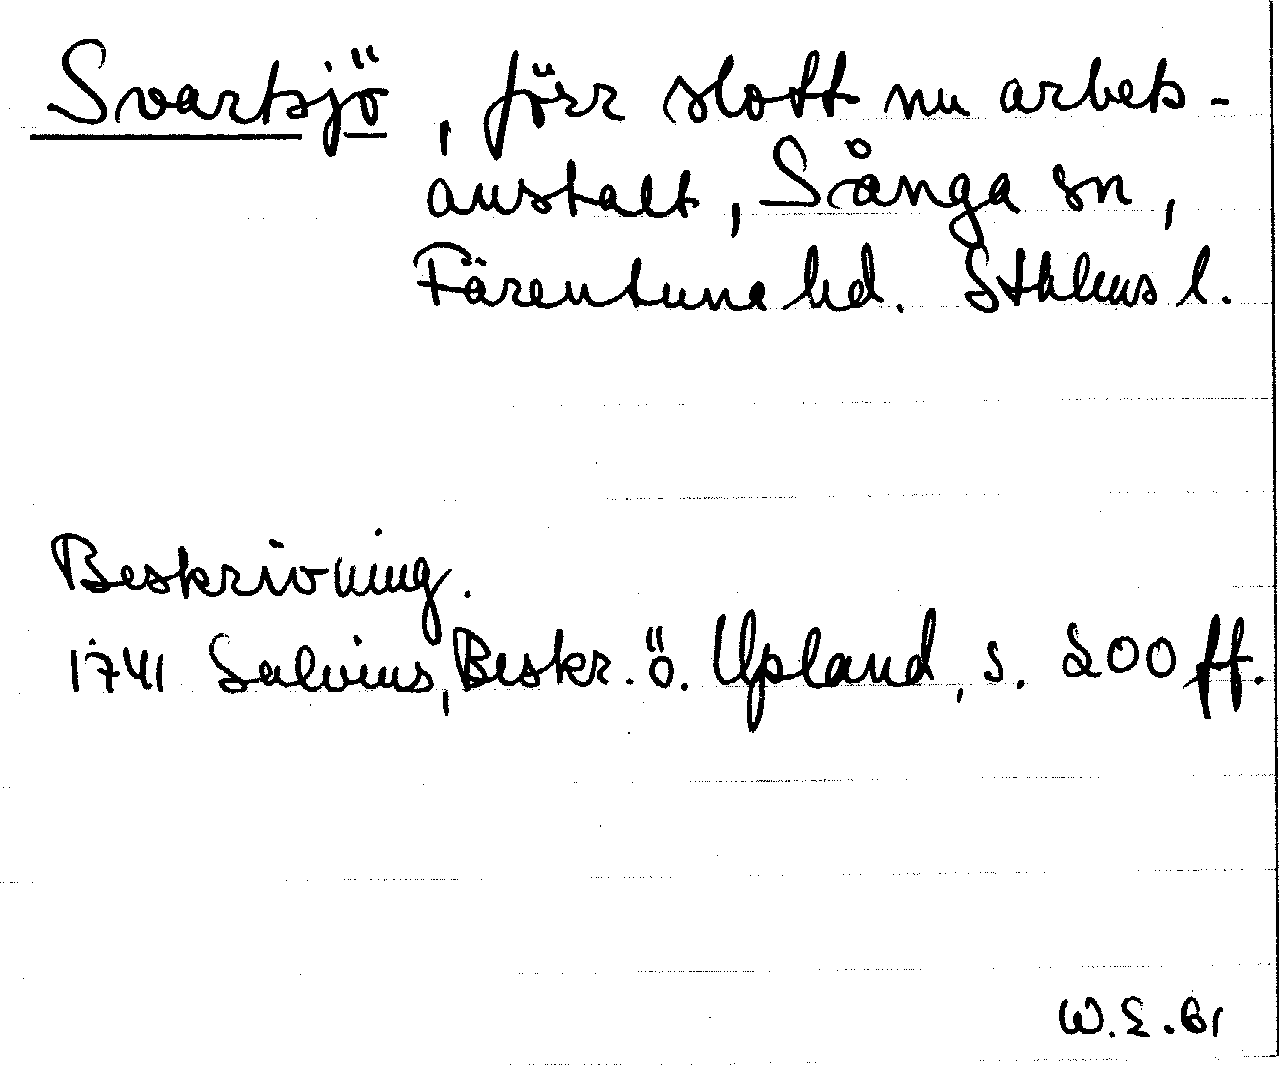 Svartsjö, förr slott nu arbets-
anstalt, Sånga sn,
Färentuna hd. Sthlms l.
Beskrivning.
1741 Salvius, Beskr. ö. Upland, s. 200 ff.
W.E. 61